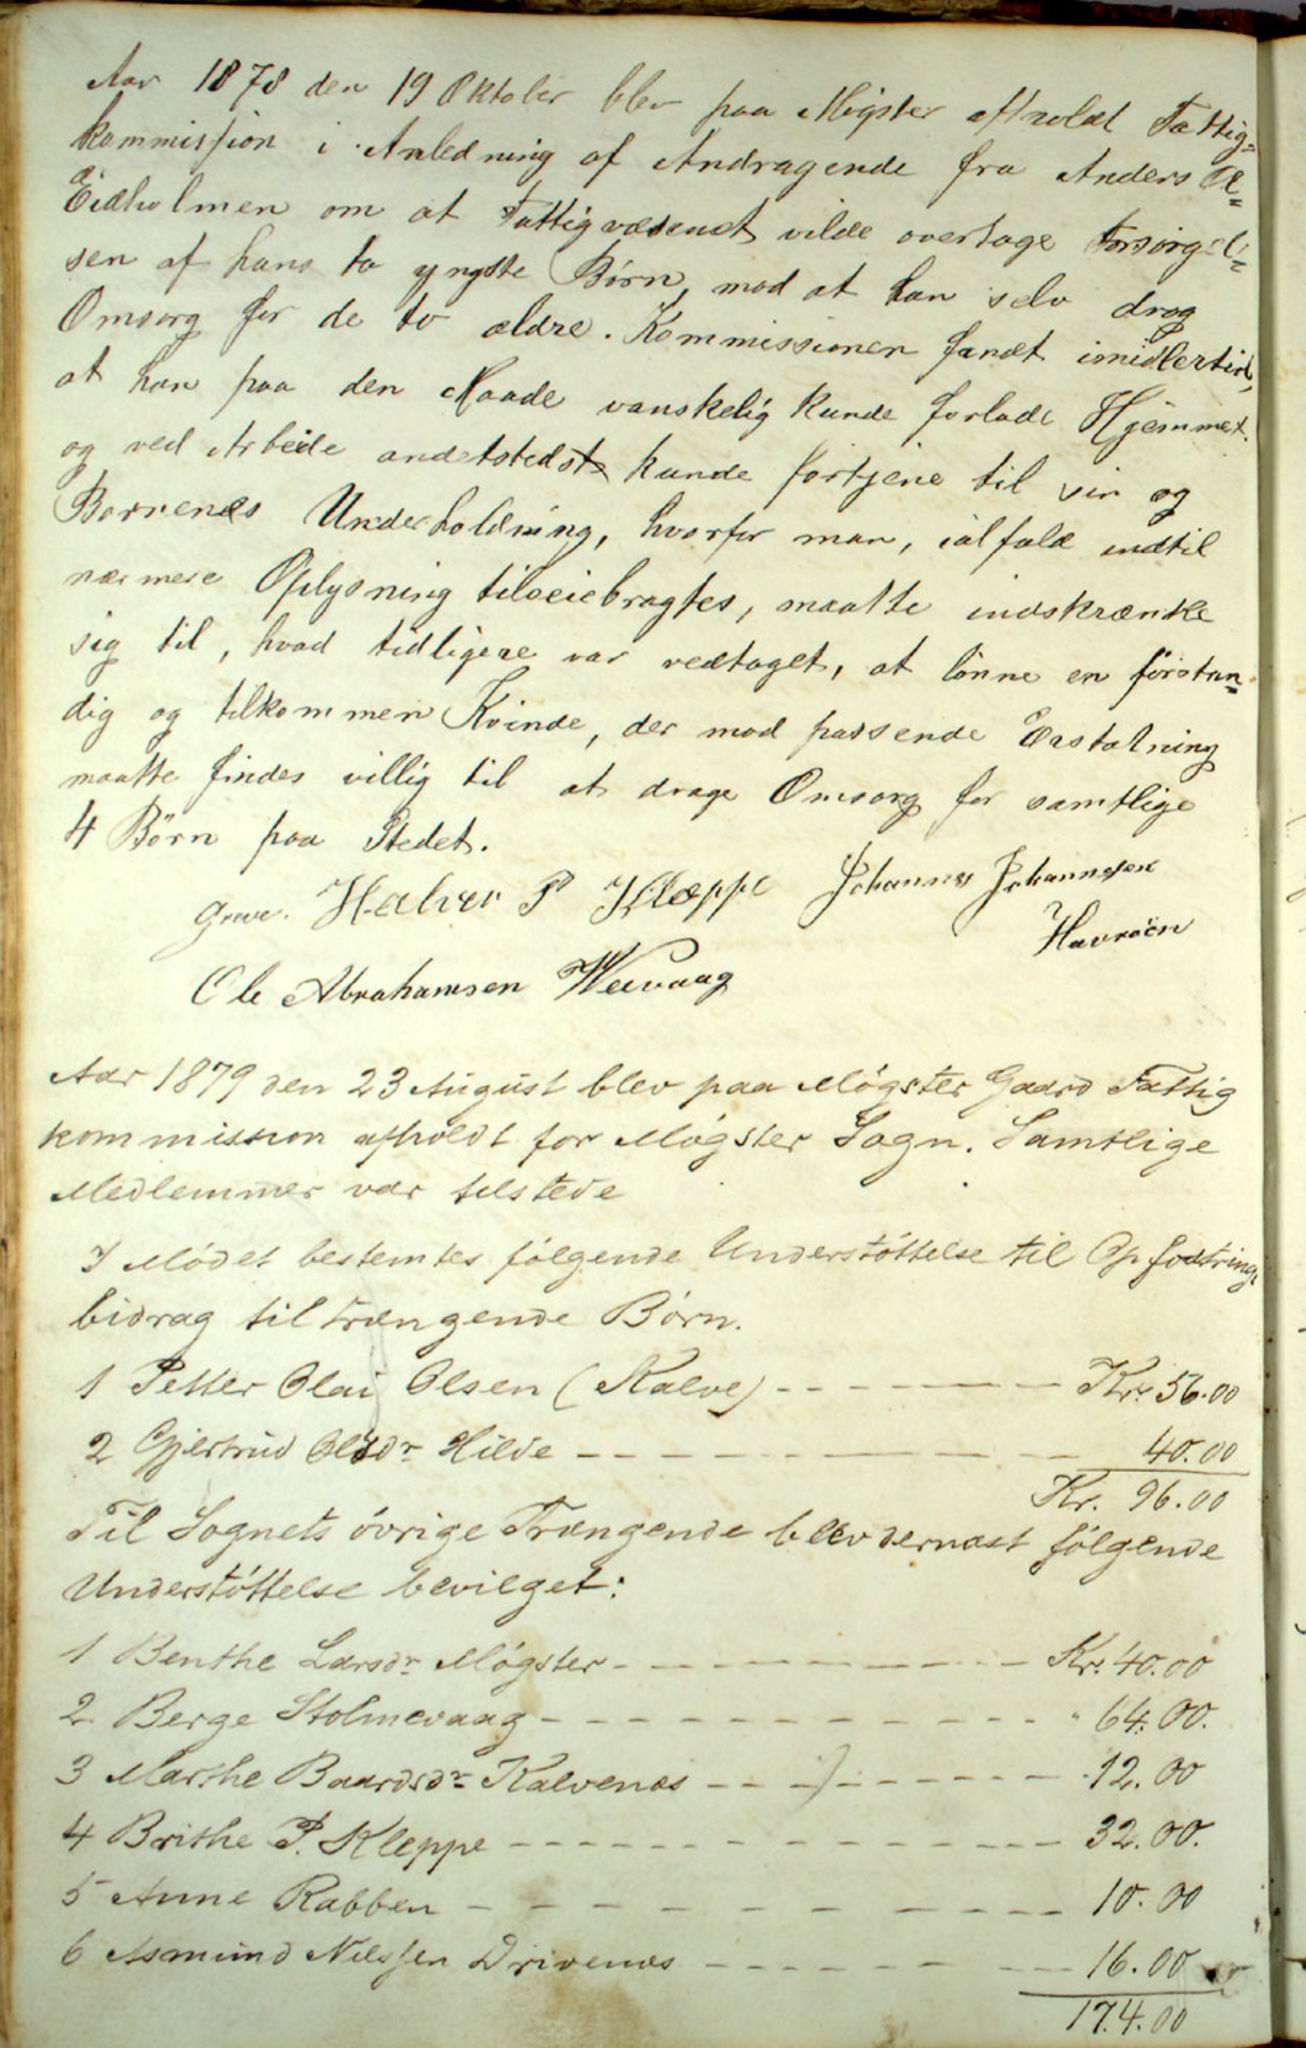 Aar 1878 den 19 Oktober blev paa Møgster afholdt Fattig=
kommission i Anledning af Andragende fra Anders
Eidholmen om at Fattigvæsenet vilde overtage Forsørgel=
sen af hans to yngste Børn, mod at han selv drog
Omsorg for de to ældre. Kommissionen fandt imidlertid,
at han paa den Maade vanskelig kunde forlade Hjemmet
og ved Arbeide andetsteds kunde fortjene til sin og
Børnenes Underholdning, hvorfor man, ialfald indtil
nærmere Oplysning tilveiebragtes, maatte indskrænke
sig til, hvad tidligere var vedtaget, at lønne en forstan=
dig og tilkommen Kvinde, der mod passende Erstatning
maatte findes villig til at drage Omsorg for samtlige
4 Børn paa Stedet.
Greve. Halver P Kleppe Johannes Johannesen
Havrøen
Ole Abrahamsen Weivaag
Aar 1879 den 23 August blev paa Møgster Gaard Fattig
kommission afholdt for Møgster Sogn. Samtlige
Medlemmer var tilstede
I Mødet bestemtes følgende Understøttelse til Opfostrings
bidrag til trængende Børn.
1 Petter Olai Olsen (Kalve) - - - - Kr. 56.00
2 Gjertrud Olsdr Hilde - - - - 40.00
Kr. 96.00
Til Sognets øvrige Trængende blev dernæst følgende
Understøttelse bevilget:
1 Benthe Larsdr Møgster - - - - Kr. 40.00
2. Berge Stolmevaag - - - - " 64.00.
3 Marthe Baardsdr Kalvenes - - - - 12.00
4 Brithe P. Kleppe - - - - 32.00.
5 Anne Rabben - - - - 10.00
6 Asmund Nilssen Drivenes - - - - 16.00
174.00